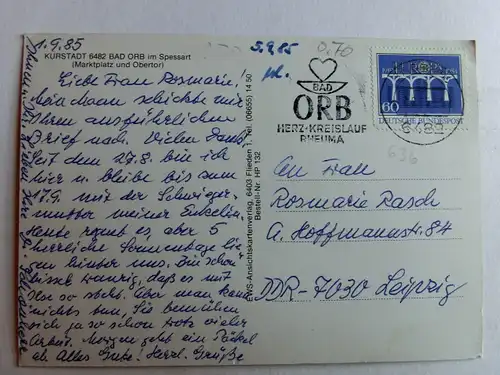 1.9.85
KURSTADT 6482 BAD ORB im Spessart
(Marktplatz und Obertor)
5.9.85
0,70
BAD
ORB
HERZ-KREISLAUF
RHEUMA
6482
EUROPA
60
DEUTSCHE BUNDESPOST
636
Liebe Frau Rosmarie!
mein Mann schickte mir
Ihren ausführlichen
Brief nach. Vielen Dank!
Seit dem 27.8. bin ich
hier u. bleibe bis zum
17.9. mit der Schwieger-
mutter meiner Enkelin.
Heute regnet es, aber 5
herrliche Sonnentage lie-
gen hinter uns. Bin schon
bissel traurig, daß es mit
Ilse so steht. Aber man kann
nichts tun, Sie bemühen
sich ja so schon trotz vieler
Arbeit. Morgen geht ein Päckel
ab. Alles Gute! Herzl. Grüße
EWS-Ansichtskartenverlag, 6403 Flieden 1, Tel. (06655) 14 50
Bestell-Nr. HP 132
An Frau
Rosmarie Rasch
A. Hoffmannstr. 84
DDR-7030 Leipzig